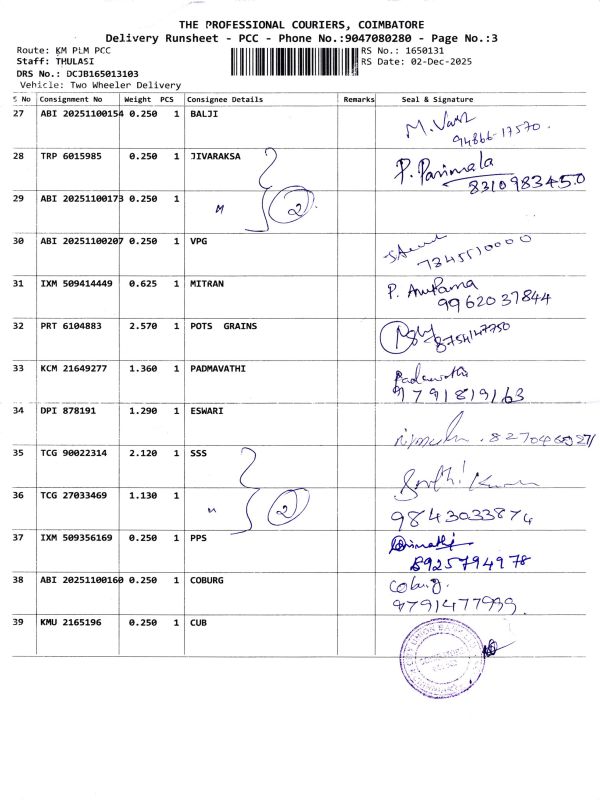 THE PROFESSIONAL COURIERS, COIMBATORE
Delivery Runsheet - PCC - Phone No.:9047080280 - Page No.:3
Route: KM PLM PCC RS No.: 1650131
Staff: THULASI RS Date: 02-Dec-2025
DRS No.: DCJB165013103
Vehicle: Two Wheeler Delivery
S No Consignment No Weight PCS Consignee Details Remarks Seal & Signature
27 ABI 20251100154 0.250 1 BALJI
94866-17570.
28 TRP 6015985 0.250 1 JIVARAKSA P. Parimala
8310983450
29 ABI 20251100173 0.250 1 " 2
30 ABI 20251100207 0.250 1 VPG
7845510000
31 IXM 509414449 0.625 1 MITRAN P. Anupama
9962037844
32 PRT 6104883 2.570 1 POTS GRAINS
8754147750
33 KCM 21649277 1.360 1 PADMAVATHI Padmavathi
9791819163
34 DPI 878191 1.290 1 ESWARI
35 TCG 90022314 2.120 1 SSS
36 TCG 27033469 1.130 1 " 2
9843033874
37 IXM 509356169 0.250 1 PPS
8925794978
38 ABI 20251100160 0.250 1 COBURG Coburg.
9791477999
39 KMU 2165196 0.250 1 CUB